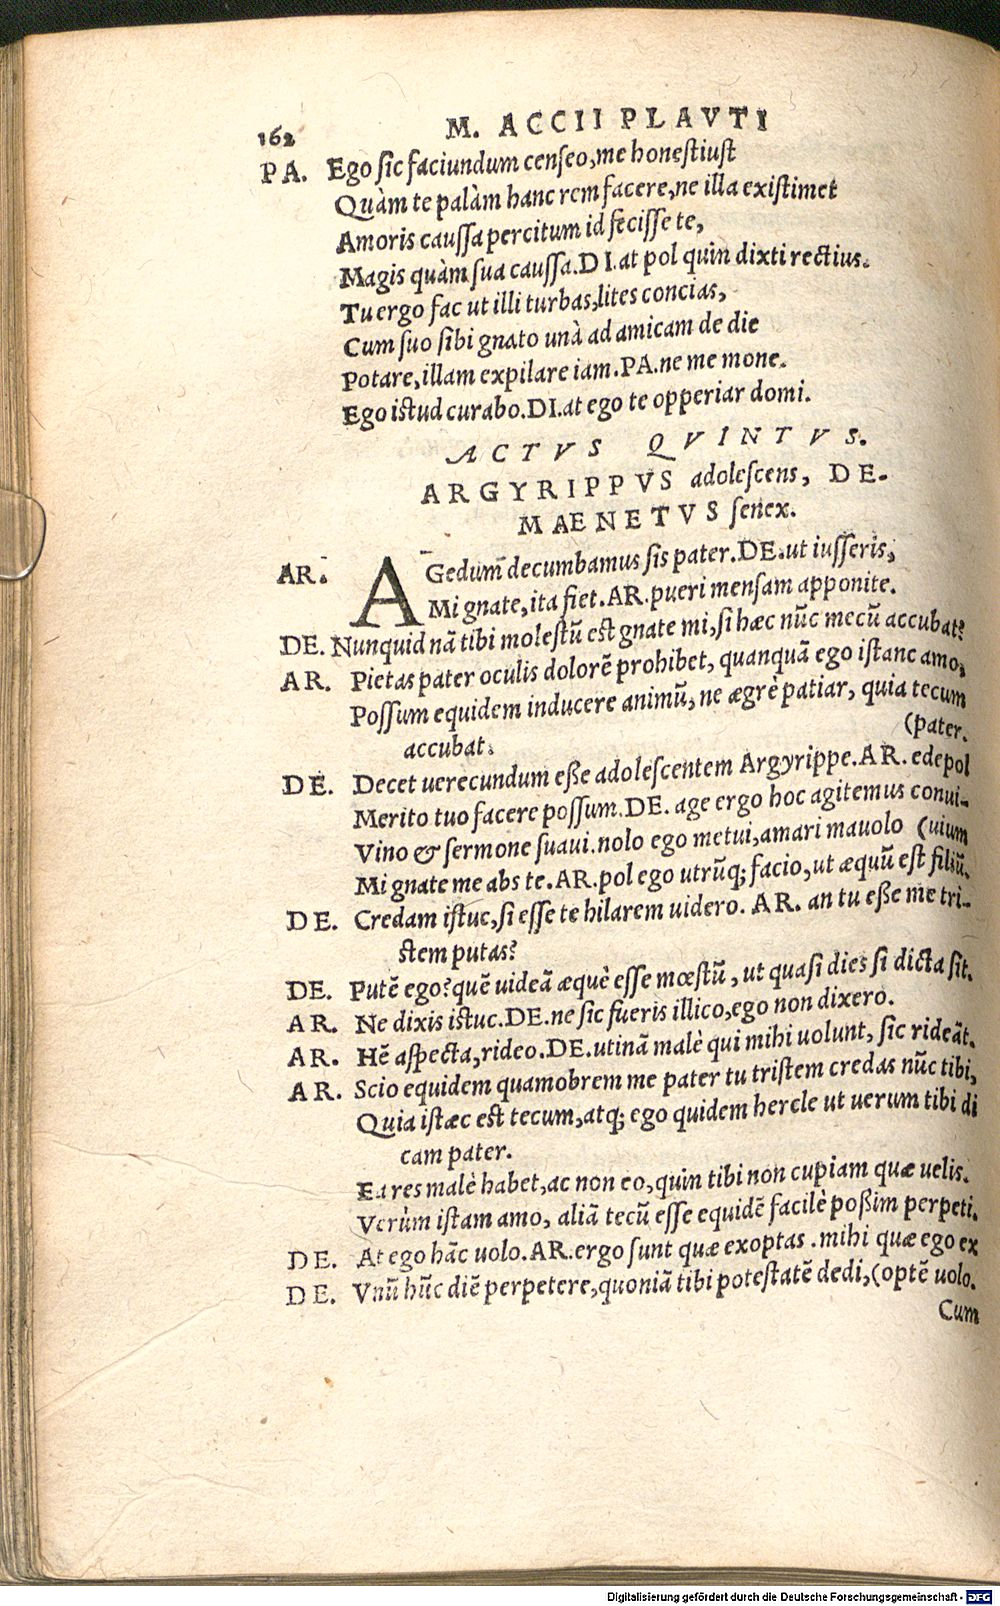 162
M. ACCII PLAVTI
PA. Ego sic faciundum censeo, me honestiust
Quàm te palàm hanc rem facere, ne illa existimet
Amoris caussa percitum id fecisse te,
Magis quàm sua caussa. DI. at pol quin dixti rectius.
Tu ergo fac ut illi turbas, lites concias,
Cum suo sibi gnato unà ad amicam de die
Potare, illam expilare iam. PA. ne me mone.
Ego istud curabo. DI. at ego te opperiar domi.
ACTVS QVINTVS.
ARGYRIPPVS adolescens, DE-
MAENETVS senex.
AR. AGedum decumbamus sis pater. DE. ut iusseris,
Mi gnate, ita fiet. AR. pueri mensam apponite.
DE. Nunquid nā tibi molestū est gnate mi, si hæc nūc mecū accubat?
AR. Pietas pater oculis dolorē prohibet, quanquā ego istanc amo,
Possum equidem inducere animū, ne ægrè patiar, quia tecum
accubat. (pater.
DE. Decet uerecundum eße adolescentem Argyrippe. AR. edepol
Merito tuo facere possum. DE. age ergo hoc agitemus conui-
Vino & sermone suaui. nolo ego metui, amari mauolo (uium
Mi gnate me abs te. AR. pol ego utrūq; facio, ut æquū est filiū.
DE. Credam istuc, si esse te hilarem uidero. AR. an tu eße me tri-
stem putas?
DE. Putē ego? quē uideā æquè esse mœstū, ut quasi dies si dicta sit.
AR. Ne dixis istuc. DE. ne sic fueris illico, ego non dixero.
AR. Hē aspecta, rideo. DE. utinā malè qui mihi uolunt, sic rideāt.
AR. Scio equidem quamobrem me pater tu tristem credas nūc tibi,
Quia istæc est tecum, atq; ego quidem hercle ut uerum tibi di
cam pater.
Ea res malè habet, ac non eo, quin tibi non cupiam quæ uelis.
Verùm istam amo, aliā tecū esse equidē facilè poßim perpeti.
DE. At ego hāc uolo. AR. ergo sunt quæ exoptas. mihi quæ ego ex
DE. Vnū hūc diē perpetere, quoniā tibi potestatē dedi, (optē uolo.
Cum
Digitalisierung gefördert durch die Deutsche Forschungsgemeinschaft - DFG